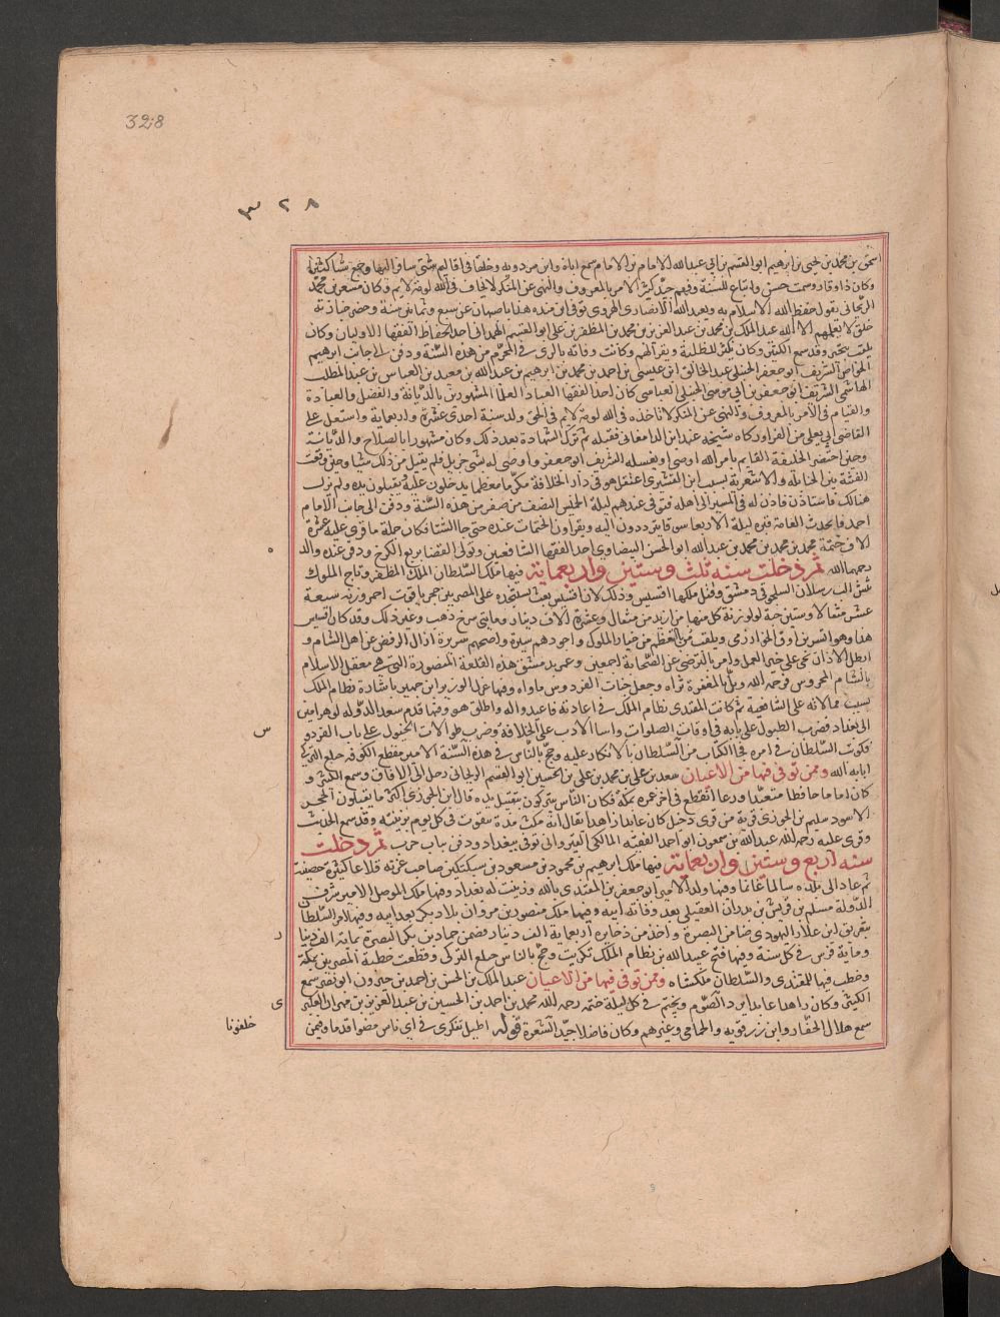 328
٣٢٨
اسحق بن محمد بن يحيى بن ابرهيم ابو القسم بن ابي عبد الله الامام بن الامام سمع اباه وابن مردويه وخلقا في اقاليم شتى سافر اليها وجمع شيا كثيرا
وكان ذا وقار وسمت حسن واتباع للسنة وفهم جيد كثير الامر بالمعروف والنهي عن المنكر لا يخاف في الله لومة لايم وكان مسعد بن محمد
الريحاني يقول حفظ الله الاسلام به وبعبد الله الانصاري الهروي توفي ابن منده هذا باصبهان عن سبع وثمانين سنة وحضر جنازته
خلق لا يعلمهم الا الله عبد الملك بن محمد بن عبد العزيز بن محمد بن المظفر بن علي ابو القسم الهمداني احد الحفاظ الفقها الاوليا وكان
يلقب ببحير وقد سمع الكثير وكان يكثر للطلبة ويقرا لهم وكانت وفاته بالري في المحرم من هذه السنة ودفن الى جانب ابرهيم
الخواص الشريف ابو جعفر الحنبلي عبد الخالق ابن عيسى بن احمد بن محمد بن ابرهيم بن عبد الله بن معبد بن العباس بن عبد المطلب
الهاشمي الشريف ابو جعفر بن ابي موسى الحنبلي العباسي كان احد الفقها العباد العلما المشهورين بالديانة والفضل والعبادة
والقيام في الامر بالمعروف والنهي عن المنكر لا تاخذه في الله لومة لايم في الحق ولد سنة احدى عشرة واربعماية واشتغل على
القاضي ابي يعلى من الفرا وزكاه شيخه عند ابن الدامغاني فقبله ثم ترك الشهادة بعد ذلك وكان مشهورا بالصلاح والديانة
وحين احتضر الخليفة القايم بامر الله اوصى ان يغسله الشريف ابو جعفر واوصى له بشي جزيل فلم يقبل من ذلك شيا وحين وقعت
الفتنة بين الحنابلة والاشعرية بسبب ابن القشيري اعتقل هو في دار الخلافة مكرما معظما يدخلون عليه يقبلون يده ولم يزل
هنالك فاستاذن فاذن له في المسير الى اهله فتوفي عندهم ليلة الخميس النصف من صفر من هذه السنة ودفن الى جانب الامام
احمد فاتخذت العامة قبره ليلة الاربعا سوقا يترددون اليه ويقراون الختمات عنده حتى جا الشتا فكان جملة ما قري عليه عشرة
الاف ختمة محمد بن محمد بن محمد بن عبد الله ابو الحسن البيضاوي احد الفقها الشافعيين وتولى القضا بربع الكرخ ودفن عند والد
رحمهما الله ثم دخلت سنه ثلث وستين واربعماية فيها ملك السلطان الملك المظفر وتاج الملوك
تتش الب رسلان السلجوقي دمشق وقتل ملكها اقسيس وذلك لان اقسيس بعث يستنجده على المصريين حجر ياقوت احمر وزنه سبعة
عشر مثقالا وستين حبة لولو زنة كل منها ازيد من مثقال وعشرة الاف دينار وماتي سرج ذهب وغير ذلك وقد كان اقسيس
هذا وهو اتسز بن اوق الخوارزمي ويلقب بالمعظم من خيار الملوك واجودهم سيرة واصحهم سريرة ازال الرفض عن اهل الشام و
ابطل الاذان بحي على خير العمل وامر بالترضي عن الصحابة اجمعين وعمر بدمشق هذه القلعة المنصورة التي هي معقل الاسلام
بالشام المحروس فرحمه الله وبل بالمغفرة ثراه وجعل جنات الفردوس ماواه وفيها عزل الوزير ابن جهير باشارة نظام الملك
بسبب ممالاته على الشافعية ثم كاتب المقتدي نظام الملك في اعادته فاعيد واله واطلق هو وفيها قدم سعد الدوله كوهراين
الى بغداد فضرب الطبول على بابه في اوقات الصلوات واسا الادب على الخلافة وضرب طوالات الخيول على باب الفردوس
فكوتب السلطان في امره فجا الكتاب من السلطان بالانكار عليه وحج بالناس في هذه السنة الامير مقطع الكوفه جنفل التركي
اثابه الله وممن توفي فيها من الاعيان سعد بن علي بن محمد بن علي بن الحسين ابو القسم الريحاني رحل الى الافاق وسمع الكثير و
كان اماما حافظا متعبدا ورعا انقطع في اخر عمره بمكة فكان الناس يتبركون بتقبيل يده قال ابن الجوزي اكثر ما يقبلون الحجر
الاسود سليم بن الجوزي قرية من قرى دجيل كان عابدا زاهدا يقال انه مكث مدة يتقوت في كل يوم بزبيبة وقد سمع الحديث
وقري عليه رحمه الله عبد الله بن سمعون ابو احمد الفقيه المالكي القيرواني توفي ببغداد ودفن بباب حرب ثم دخلت
سنه اربع وستين واربعماية فيها ملك ابرهيم بن محمود بن مسعود بن سبكتكين صاحب غزنة قلاعا كثيرة حصينة
ثم عاد الى بلده سالما غانما وفيها ولد الامير ابو جعفر بن المقتدي بالله وزينت له بغداد وفيها ملك الموصل الامير شرف
الدولة مسلم بن قريش بن بدران العقيلي بعد وفاته ابيه وفيها ملك منصور بن مروان بلاد بكر بعد ابيه وفيها امر السلطا
بتغريق ابن علان اليهودي ضامن البصرة واخذ من ذخايره اربعماية الف دينار وضمن خمارتكين البصرة بماية الف دينا
وماية فرس في كل سنة وفيها فتح عبيد الله بن نظام الملك تكريت وحج بالناس جنفل التركي وقطعت خطبة المصريين بمكة
وخطب فيها للمقتدي والسلطان ملكشاه وممن توفي فيها من الاعيان عبد الملك بن الحسن بن احمد بن خيرون ابو نصر سمع
الكثير وكان زاهدا عابدا يسرد الصوم ويختم في كل ليلة ختمه رحمه الله محمد بن احمد بن الحسين بن عبد العزيز بن مهران العكبر
سمع هلال الحفار وابن زرقويه والحمامي وغيرهم وكان فاضلا جيد الشعر قوله اطيل تفكري في اي ناس مضوا قدما وفيمن
ه
س
ر
ي
خلفونا